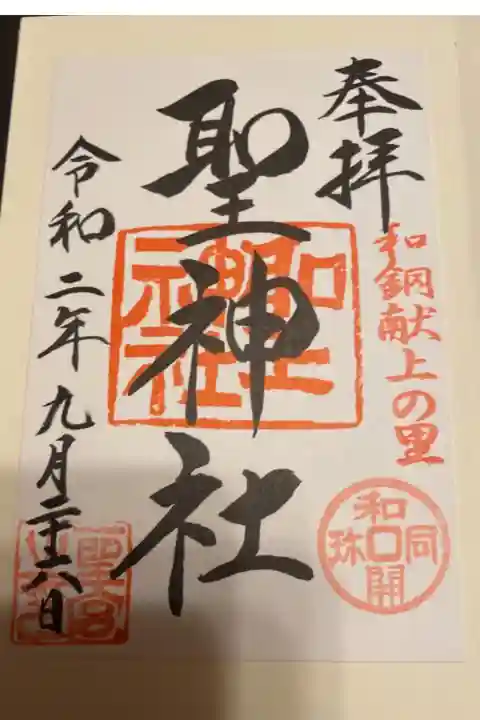 奉拝
和銅献上の里
和同開珎
聖神社
聖神社
令和二年九月二十六日